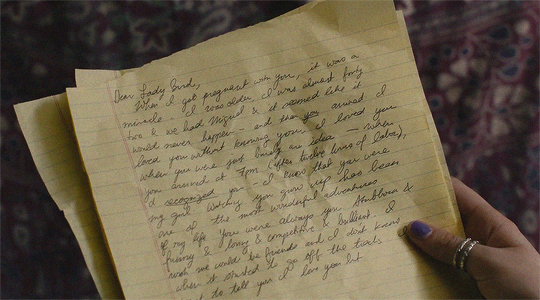 Dear Lady Bird,
When I got pregnant with you, it was a
miracle. I was older. I was almost forty
two & we had Miguel & it seemed like it
would never happen — and then you arrived. I
loved you without knowing you. I loved you
when you were just barely an idea — when
you arrived at 7pm (after twelve hours of labor),
I recognized you - I knew that you were
my girl. Watching you grow up has been
one of the most wonderful adventures
of my life. You were always you. Stubborn &
funny & loving & competitive & brilliant. I
wish we could be friends and I don't know
when it started to go off the tracks
to tell you I love you but